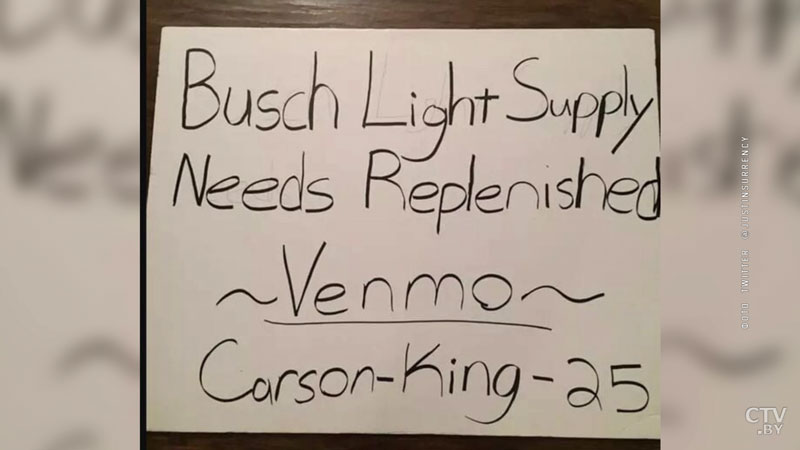 Busch Light Supply
Needs Replenished
~Venmo~
Carson-King-25
ФОТО TWITTER @JUSTINSURRENCY
CTV
.BY